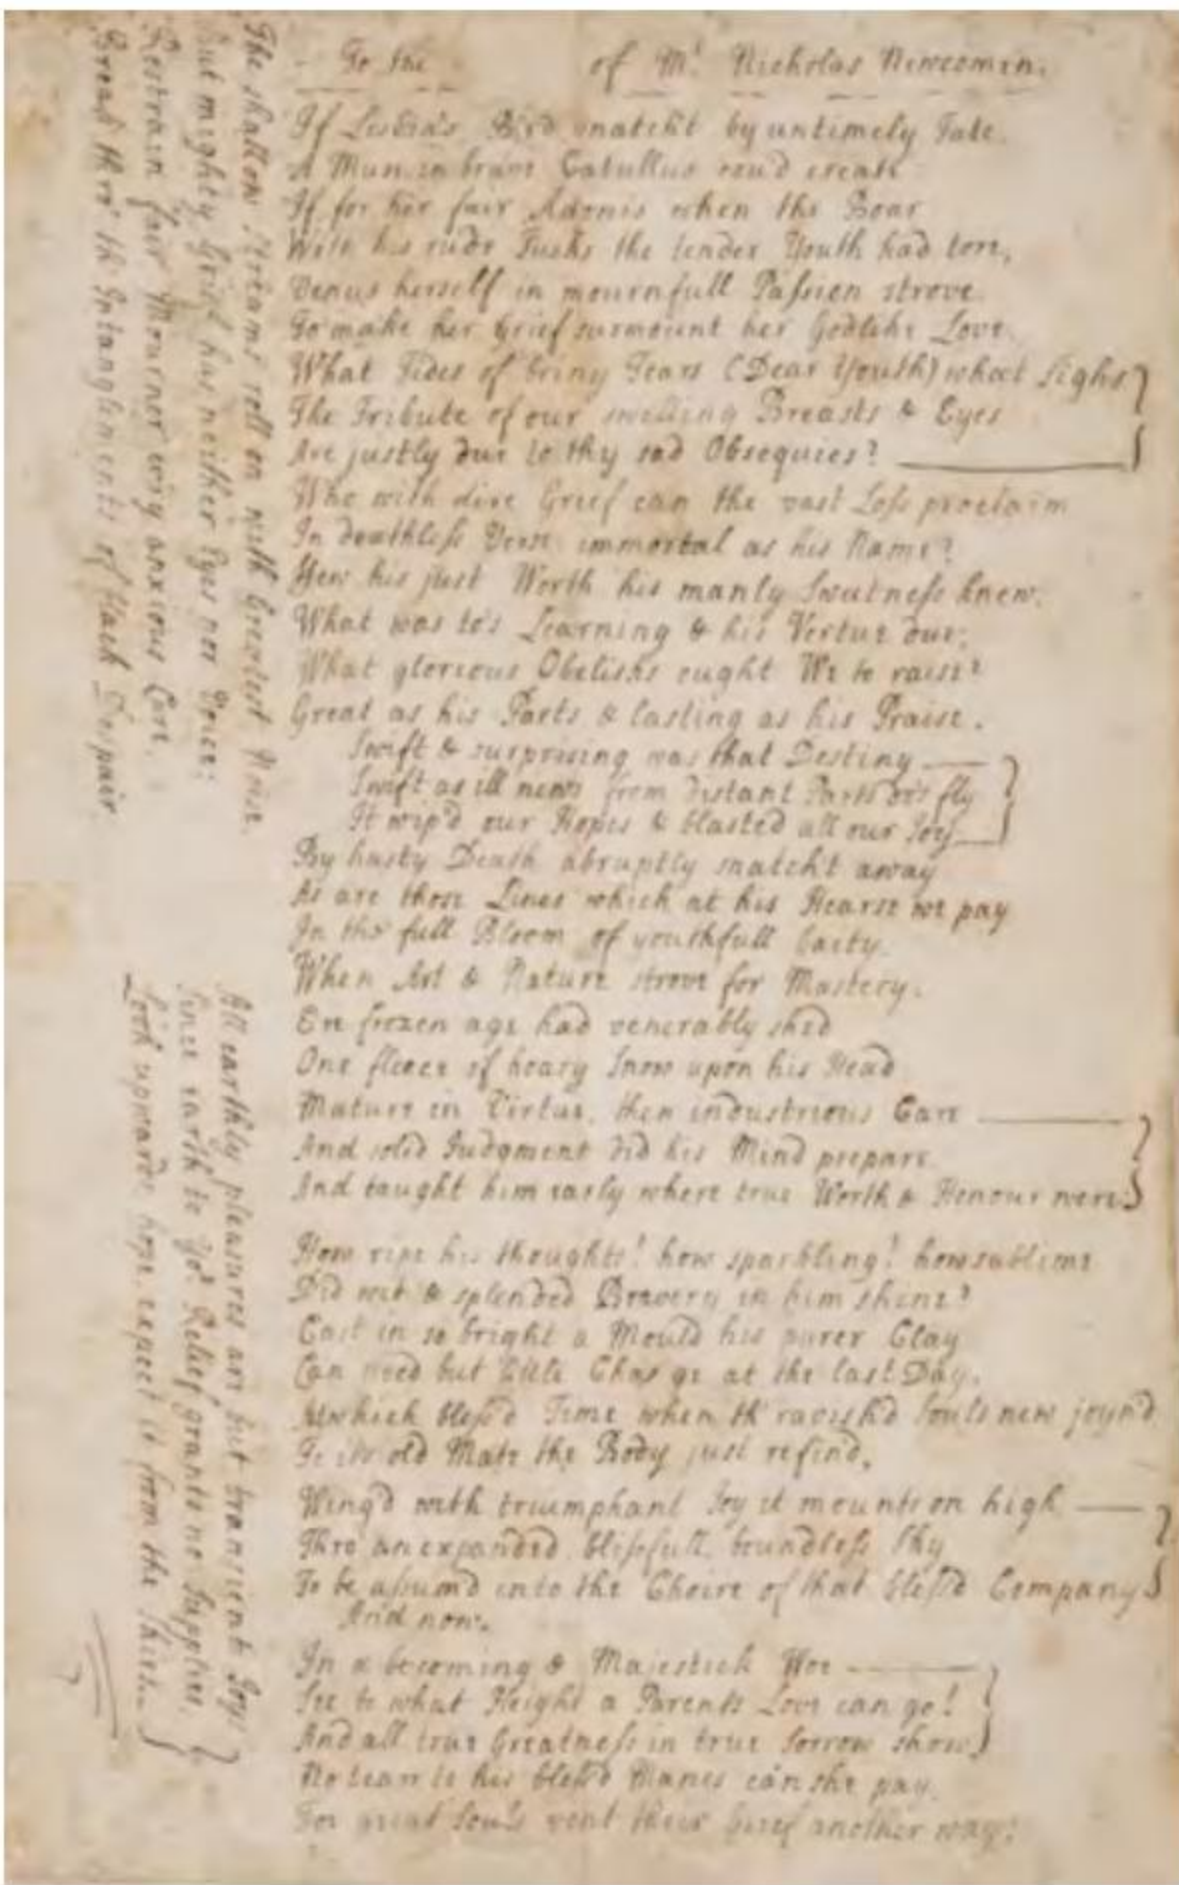 To the of Mr. Nicholas Newcomen.
If Lesbia's Bird snatcht by untimely Fate
A Mun in brave Catullus coud create
If for her fair Adonis when the Boar
With his rude Tusks the tender Youth had tore,
Venus herself in mournfull Passion strove
To make her Grief surmount her Godlike Love
What Tides of briny Tears (Dear Youth) what Sighs
The Tribute of our swelling Breasts & Eyes
Are justly due to thy sad Obsequies?
Who with dire Grief can the vast Loss proclaim
In deathless Verse immortal as his Name?
How his just Worth his manly Sweetness knew,
What was to's Learning & his Vertue due;
What glorious Obelisks ought We to raise?
Great as his Parts & lasting as his Praise.
Swift & surprising was that Destiny
Swift as ill news from distant Parts fly
It wip'd our Hopes & blasted all our Joy
By hasty Death abruptly snatcht away
As are those Lines which at his Hearse we pay
In the full Bloom of youthfull Gaity
When Art & Nature strove for Mastery.
Ere frozen age had venerably shed
One fleece of hoary Snow upon his Head
Mature in Virtue, then industrious Care
And solid Judgment did his Mind prepare
And taught him early where true Worth & Honour were:
How ripe his thoughts! how sparkling! how sublime
Did wit & splended Bravery in him shine?
Cast in so bright a Mould his purer Clay
Can need but little Change at the last Day.
At which bless'd Time when th' ravish'd Soul's new joyn'd
To its old Mate the Body just refind,
Wing'd with triumphant Joy it mounts on high
Thro an expanded blissfull boundless Sky
To be assum'd into the Choire of that bless'd Company
And now.
In a becoming & Majestick Woe
See to what Height a Parents Love can go!
And all true Greatness in true Sorrow show
No tear to his bless'd Manes can she pay
For great Souls vent their Grief another way:
The shallow Streams roll on with Greatest Noise
But mighty Grief has neither Eyes nor Voice:
Restrain fair Mourner evry anxious Care,
Break thro' th' Intanglements of black Despair
All earthly pleasures are but transient Joys
Since earth to yor Relief grants no Supplies,
Look upward, hope, expect it from the Skies